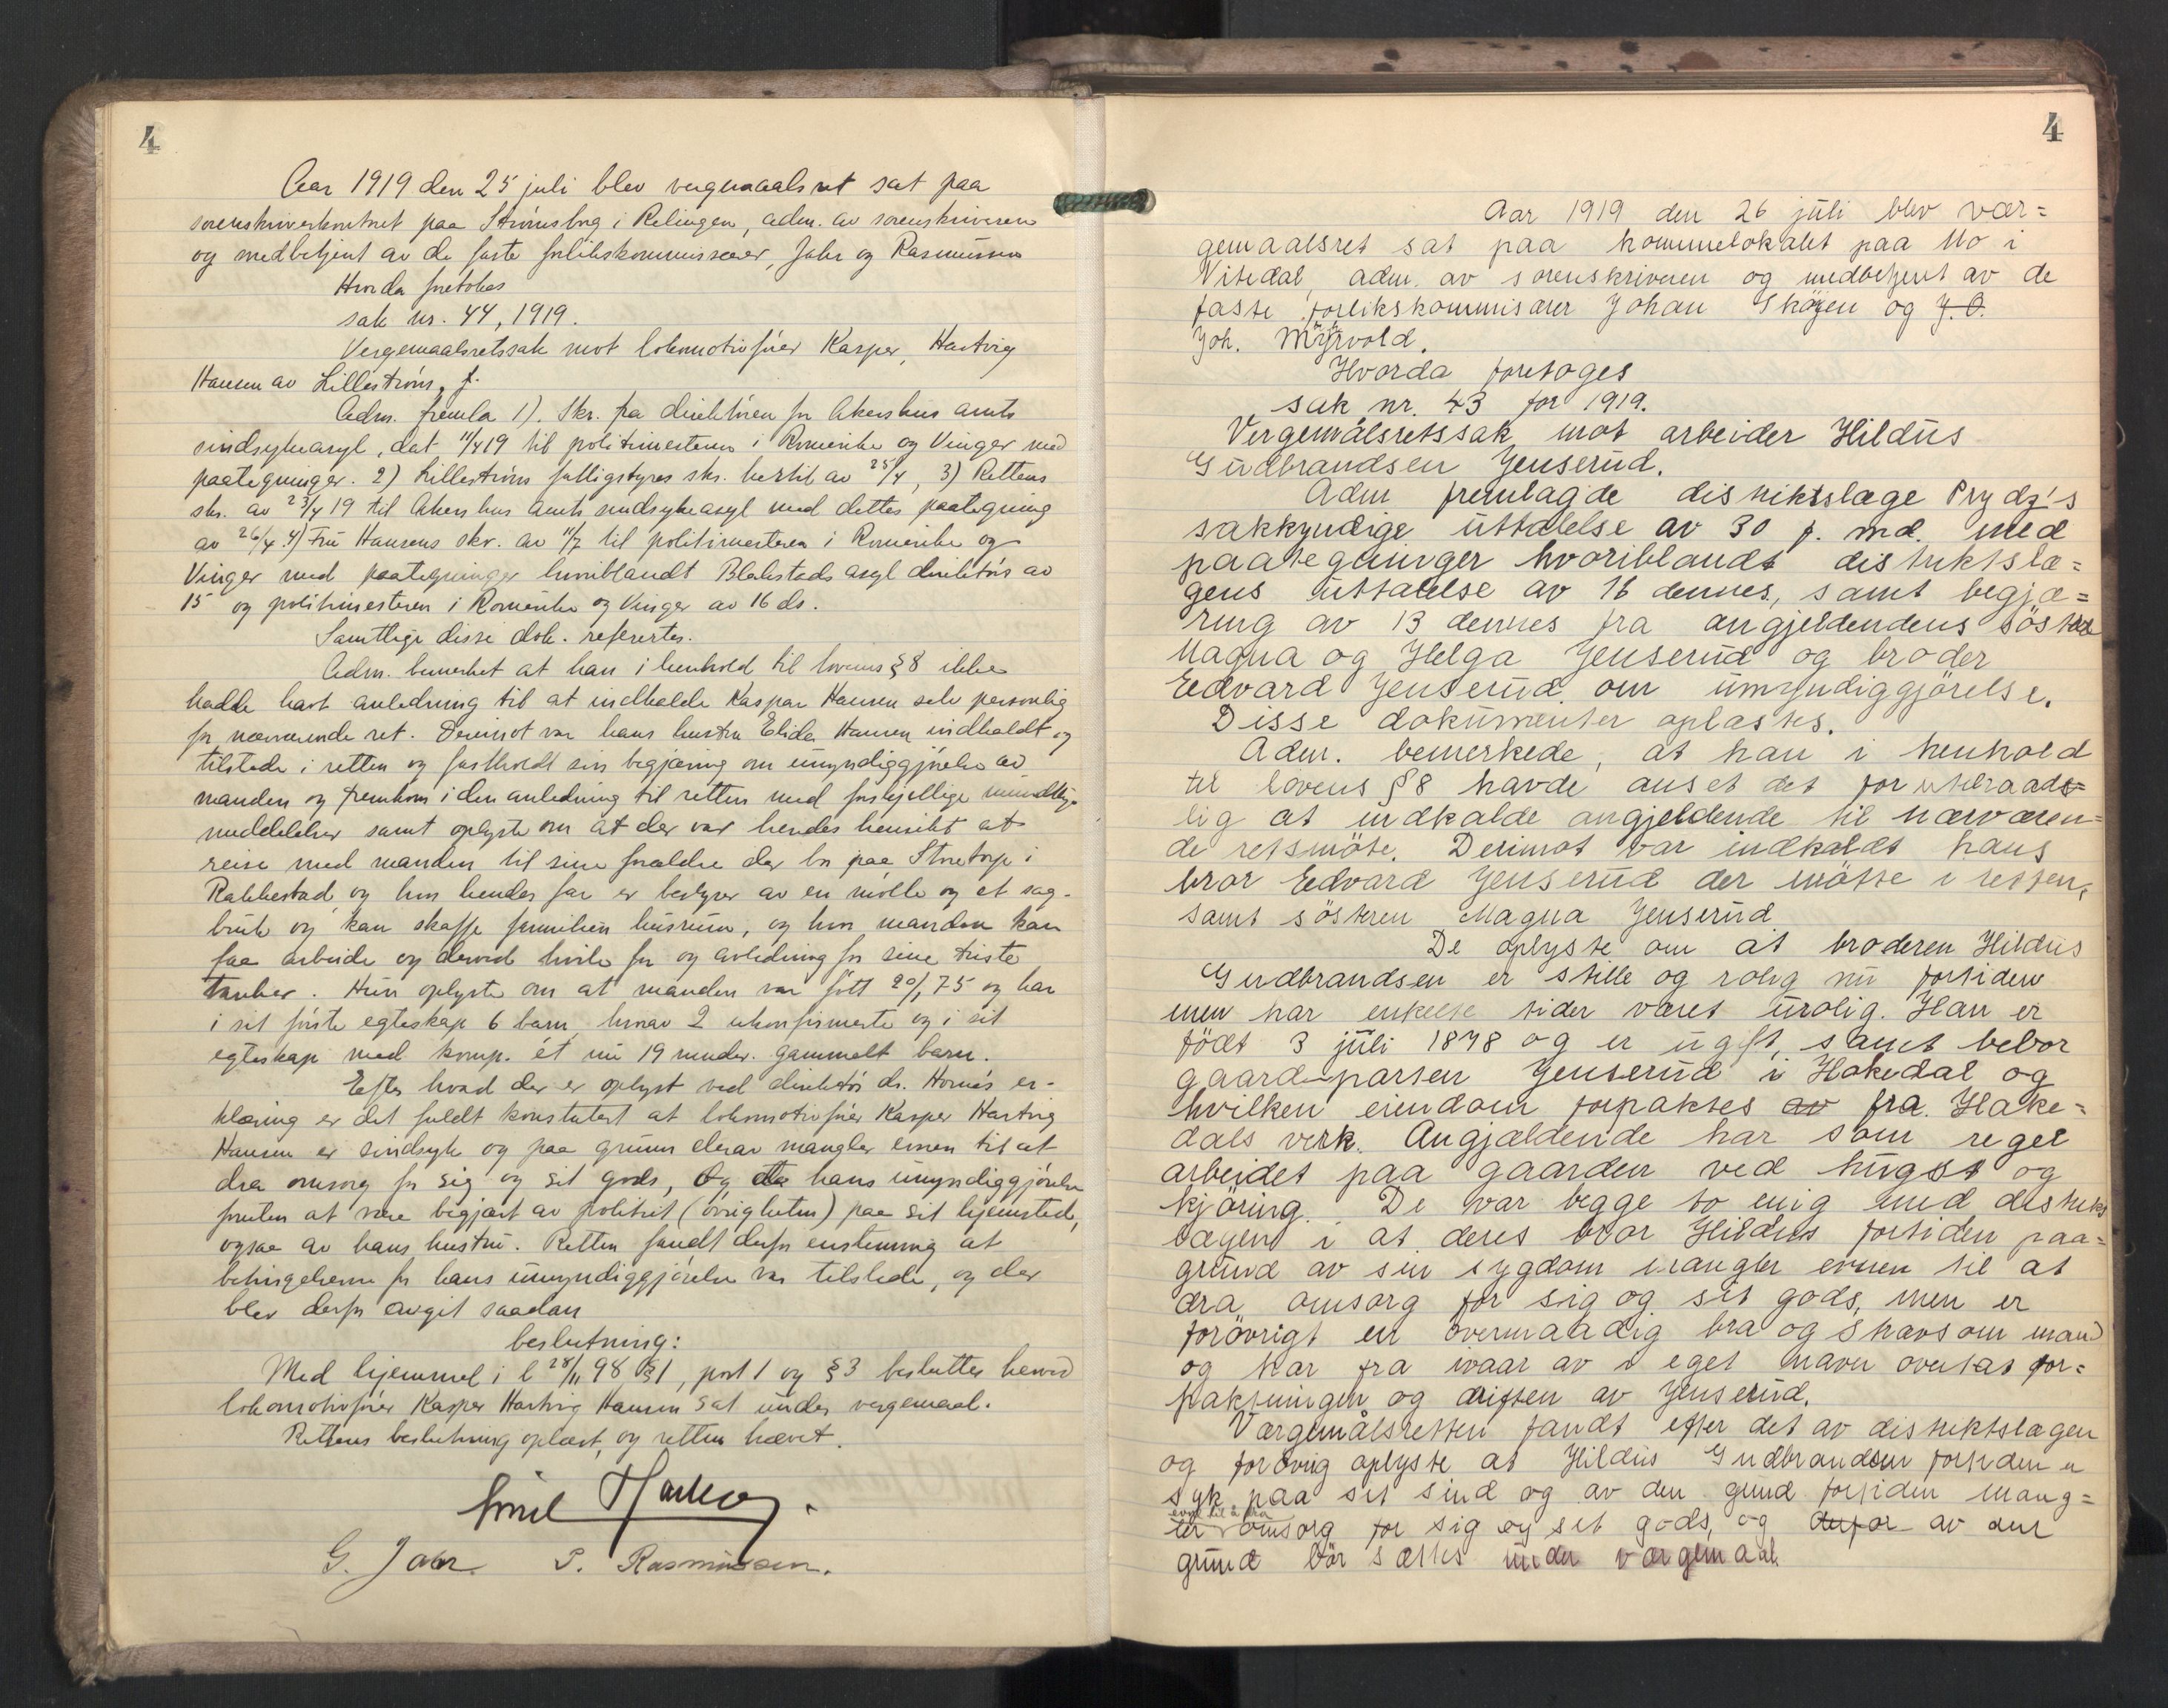 4
Aar 1919 den 25 juli blev vergemaalsret sat paa
sorenskriverkontoret paa Strømsborg i Relingen, adm. av sorenskriveren
og medbetjent av de faste forlikskommissærer, Jahr og Rasmussen
Hvorda foretokes
sak nr. 44, 1919.
Vergemaalsretssak mot lokomotivfører Kasper, Hartvig
Hansen av Lillestrøm.
Adm. fremla 1). Skr. fra direktøren for Akershus amts
sindsykeasyl, dat 11/4 19 til politimesteren i Romerike og Vinger med
paategninger. 2) Lillestrøms fattigstyres skr. hertil av 25/4, 3) Rettens
skr. av 23/4 19 til Akershus amts sindsykeasyl med dettes paategning
av 26/4. 4) Fru Hansens skr. av 11/7 til politimesteren i Romerike og
Vinger med paategninger hvoriblandt Blakstads asyl direktørs av
15 og politimesteren i Romerike og Vinger av 16 ds.
Samtlige disse dok. refertes.
Adm. bemerket at han i henhold til lovens § 8 ikke
hadde havt anledning til at indkalde Kasper Hansen selv personlig
for nærværende ret. Derimot var hans hustru Elida Hansen indkaldt og
tilstede i retten og fastholdt sin begjæring om umyndiggjørelse av
manden og fremkom i den anledning til retten med forskjellige mundtlige
meddelelser samt oplyste om at der var hendes hensikt at
reise med manden til sine forældre der bor paa Storetorp i
Rakkestad og hvor hendes far er bestyrer av en mølle og et sag-
bruk og kan skaffe familien husrum, og hvor manden kan
faa arbeide og derved hvile for og avledning for sine triste
tanker. Hun oplyste om at manden var født 20/1 75 og har
i sit første egteskap 6 barn, hvorav 2 ukonfirmerte og i sit
egteskap med komp. ét nu 19 mndr. gammelt barn.
Efter hvad der er oplyst ved direktør dr. Hornes er-
klæring er det fuldt konstatert at lokomotivfører Kasper Hartvig
Hansen er sindsyk og paa grunn derav mangler evnen til at
dra omsorg for sig og sit gods, Og da hans umyndiggjørelse
foruten at være begjært av politiet (øvrigheten) paa sit hjemsted,
ogsaa av hans hustru. Retten fandt derfor enstemmig at
betingelserne for hans umyndiggjørelse var tilstede, og der
blev derfor avgit saadan
beslutning:
Med hjemmel i l 28/11 98 § 1, post 1 og § 3 besluttes herved
lokomotivfører Kasper Hartvig Hansen sat under vergemaal.
Rettens beslutning oplæst, og retten hævet.
Emil
G. Jahr. P. Rasmussen.
4
Aar 1919 den 26 juli blev vær=
gemaalsret sat paa kommunelokalet paa Mo i
Nitedal, adm. av sorenskriveren og medbetjent av de
faste forlikskommisærer Johan Skøyen og J. O.
Joh. Myrvold.
Hvorda foretoges
sak nr. 43 for 1919.
Vergemålsretssak mot arbeider Hildus
Gudbrandsen Jenserud.
Adm fremlagde distriktslæge Prydz's
sakkyndige uttalelse av 30 f. md. med
paategninger hvoriblandt distriktslæ=
gens uttalelse av 16 dennes, samt begjæ=
ring av 13 dennes fra angjeldendens søstre
Magna og Helga Jenserud og broder
Edvard Jenserud om umyndiggjørelse.
Disse dokumenter oplæstes.
Adm. bemerkede, at han i henhold
til lovens § 8 havde anset det for utilraade=
lig at indkalde angjeldende til nærværen=
de retsmøte. Derimot var indkaldt hans
bror Edvard Jenserud der møtte i retten,
samt søsteren Magna Jenserud
De oplyste om at broderen Hildus
Gudbrandsen er stille og rolig nu fortiden
men har enkelte tider været urolig. Han er
født 3 juli 1878 og er ugift, samt bebor
gaardsparten Jenserud i Hakedal og
hvilken eiendom forpaktes av fra Hake=
dals verk. Angjældende har som regel
arbeidet paa gaarden ved hugst og
kjøring. De var begge to enig med distrikts
lægen i at deres bror Hildus fortiden paa=
grund av sin sygdom mangler evnen til at
dra omsorg for sig og sit gods, men er
forøvrigt en overmaadig bra og stavsom mand
og har fra ivaar av i eget navn overtat for=
paktningen og driften av Jenserud.
Værgemålsretten fandt efter det av distriktslægen
og forøvrig oplyste at Hildus Gudbrandsen fortiden er
syk paa sit sind og av den grund fortiden mang=
ler evne til å dra omsorg for sig og sit gods, og derfor av den
grund bør sættes under værgemaal.